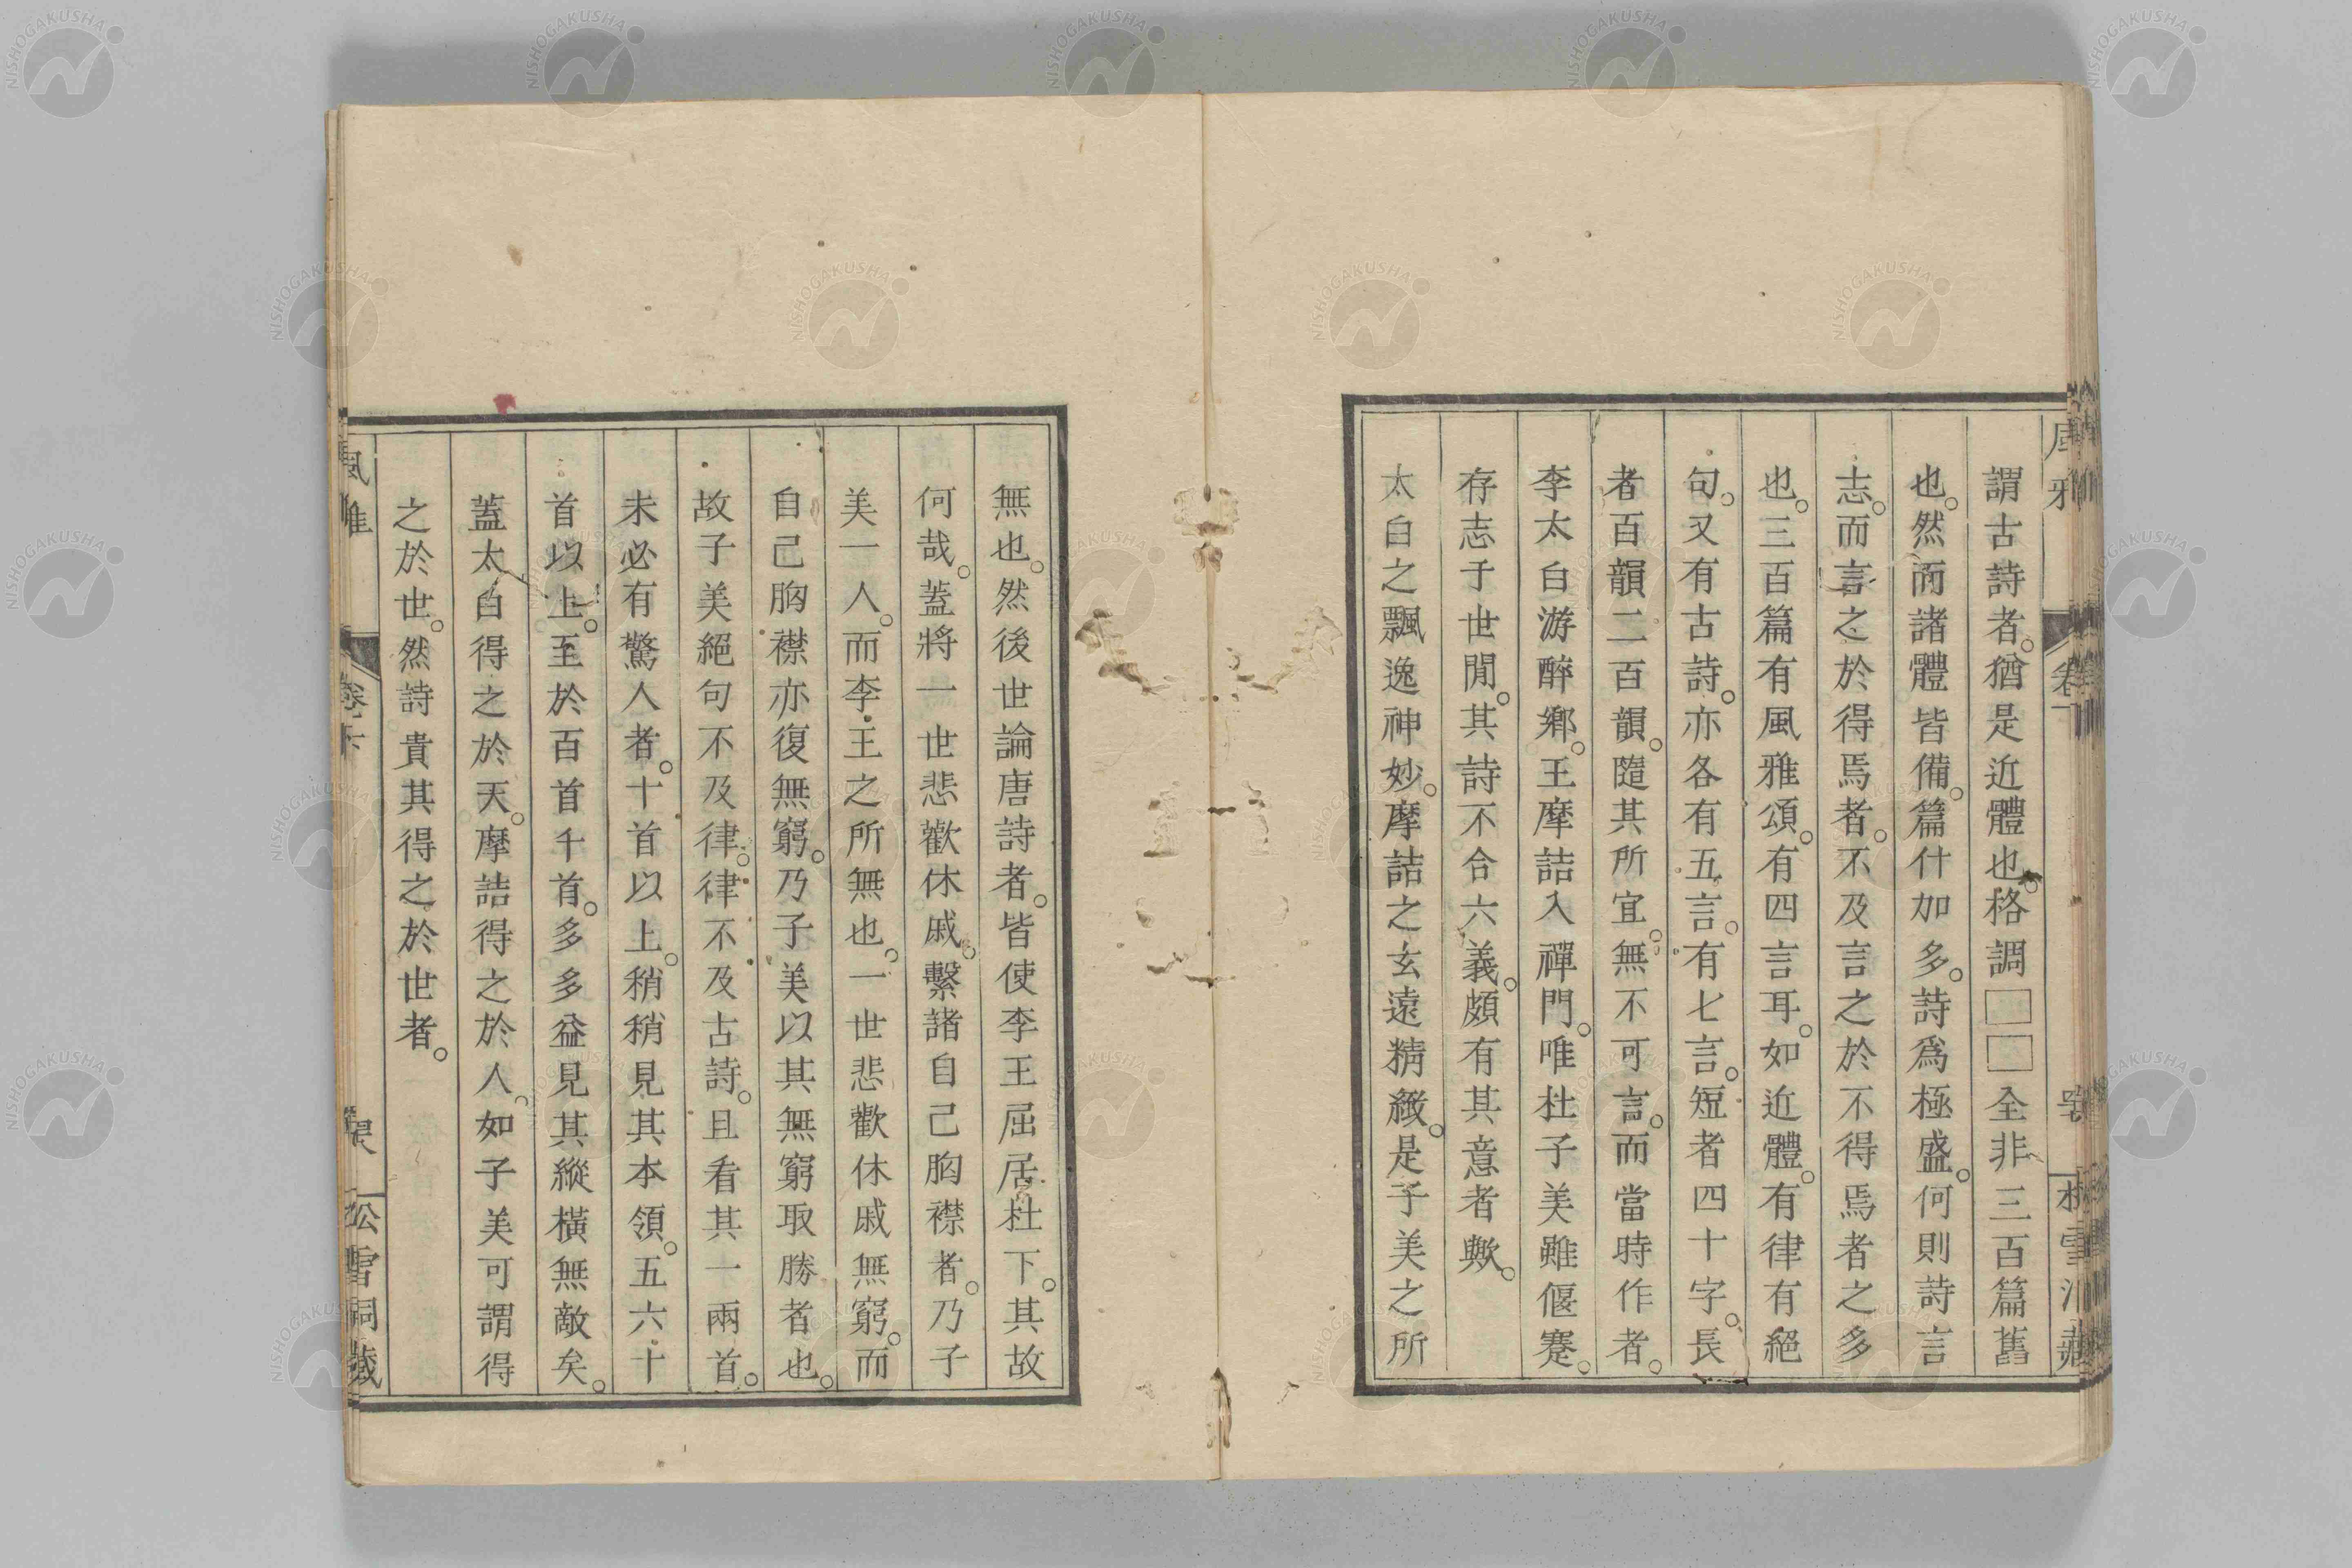 謂古詩者。猶是近體也。格調□□全非三百篇舊
也。然而諸體皆備。篇什加多。詩爲極盛。何則詩言
志。而言之於得焉者。不及言之於不得焉者之多
也。三百篇有風雅頌。有四言耳。如近體。有律有絕
句。又有古詩。亦各有五言。有七言。短者四十字。長
者百韻二百韻。隨其所宜。無不可言。而當時作者。
李太白游醉鄉。王摩詰入禪門。唯杜子美雖偃蹇。
存志于世閒。其詩不合六義。頗有其意者歟。
太白之飄逸神妙。摩詰之玄遠精緻。是子美之所
無也。然後世論唐詩者。皆使李王屈居杜下。其故
何哉。蓋將一世悲歡休戚。繫諸自己胸襟者。乃子
美一人。而李王之所無也。一世悲歡休戚無窮。而
自己胸襟亦復無窮。乃子美以其無窮取勝者也。
故子美絕句不及律。律不及古詩。且看其一兩首。
未必有驚人者。十首以上。稍稍見其本領。五六十
首以上。至於百首千首。多多益見其縱橫無敵矣。
蓋太白得之於天。摩詰得之於人。如子美可謂得
之於世。然詩貴其得之於世者。
NISHOGAKUSHA